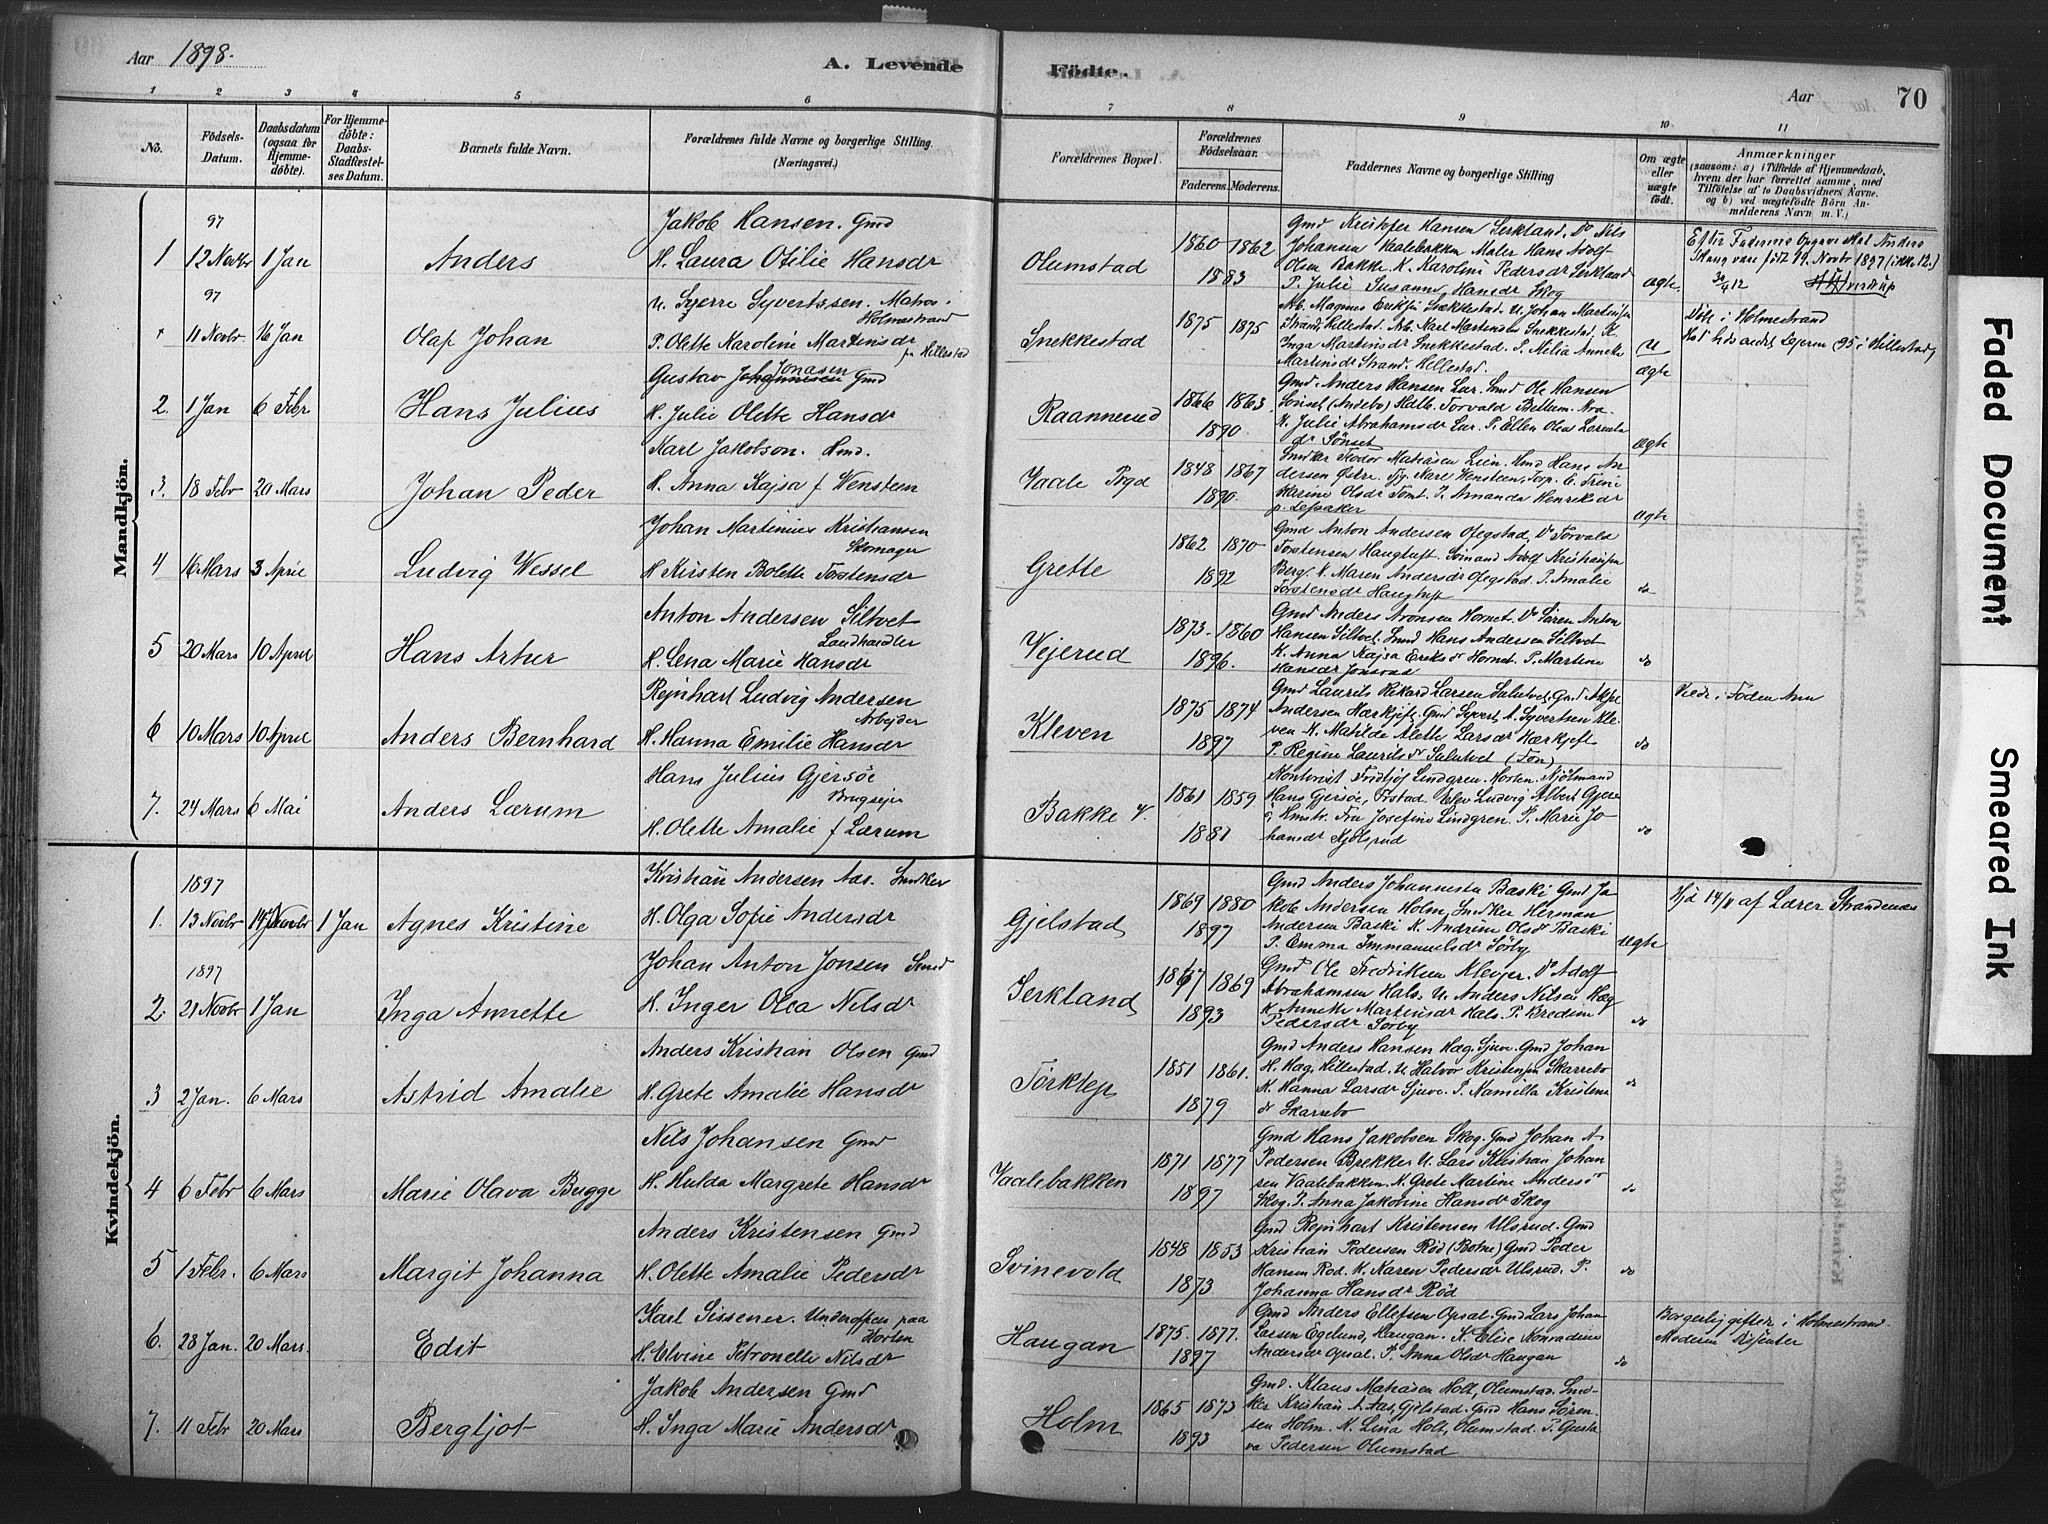 Aar 1898.
A. Levende
Födte.
Aar
70
1
2
3
4
5
6
7
8
9
10
11
No.
Födsels-
Datum.
Daabsdatum
(ogsaa for
Hjemme-
döbte).
For Hjemme-
döbte:
Daabs-
Stadfæstel-
ses Datum.
Barnets fulde Navn.
Forældrenes fulde Navne og borgerlige Stilling.
(Næringsvei.)
Forældrenes Bopæl.
Forældrenes
Födselsaar.
Faderens.
Moderens.
Faddernes Navne og borgerlige Stilling
Om ægte
eller
uægte
födt.
Anmærkninger
(saasom: a) i Tilfælde af Hjemmedaab,
hvem der har forrettet samme, med
Tilföielse af to Daabsvidners Navne.
og b) ved uægtefödte Börn An-
melderens Navn m. V.)
Mandkjön.
97
1 12 Novbr 1 Jan Anders
Jakob Hansen. Gmd
H. Laura Otilie Hansdr
Olumstad
1860 1862
1883
Gmd Kristofer Hansen Serkland. Do Nils
Johansen Vaalebakken Maler Hans Adolf
Olsen Bakke. K. Karoline Pedersdr Serkland
P. Julie Susanne Hansdr Skog
ægte.
Efter Faderens Opgave skal Anders
Skaug være födt 29. Novbr 1897 (ikke 12.)
30/4 12
97
+ 11 Novbr 16 Jan Olaf Johan
U. Sverre Syvertssen. Matros
Holmestrand
P. Olette Karoline Martinsdr
fr Hillestad
Snekkestad
1875 1875
Arb. Magnus Eriksen Snekkestad. U. Johan Martinsen
Strand, Hillestad. Arb. Karl Martinsen Snekkestad. K.
Inga Martinsdr Snekkestad. P. Milia Anneke
Martinsdr Strand. Hillestad.
U
ægte
Döbt i Holmestrand
2. 1 Jan 6 Febr Hans Julius
Gustav Jonasen Gmd
H. Julie Olette Hansdr
Raannerud
1866 1863
1890.
Gmd. Anders Hansen Lur. Smd Ole Hansen
Sönset (Andebo) Torvald Bettum.
K. Julie Abrahamsdr Lur. P. Ellen Olea
dr Sönset
ægte
3. 18 Febr 20 Mars Johan Peder
Karl Jakobson. Smd.
H. Anna Kajsa f Wensteen
Vaale Prgd
1848 1867
1890.
Smdker Teodor Matiasen Lien. Smd Hans An-
dersen Östre. Karl Wensteen, Torp. G. Trine
Karine Olsdr Tomt. P. Amanda Henriksdr
p. Lefsaker
ægte
4 16 Mars 3 April Ludvig Wessel
Johan Martinius Kristiansen
Skomager
H Kirsten Bolette Torstensdr
Grette
1862 1870
1892
Gmd Anton Andersen Ofegstad, Do Torvald
Torstensen Haugtuft. Sömand Adolf Kristiansen
Berg. K. Maren Andersdr Ofegstad. P. Amalie
Torstensdr Haugtuft
do
5 20 Mars 10 April Hans Artur
Anton Andersen Siltvet
Landhandler
H. Lena Marie Hansdr
Vejerud
1873. 1860
1896.
Gmd Anders Aronsen Hornet. Do Sören Anton
Hansen Siltvet. Smd Hans Andersen Siltvet
K. Anna Kajsa Eriksdr Hornet. P. Martine
Hansdr
do
6 10 Mars 10 April Anders Bernhard
Rejnhart Ludvig Andersen
Arbejder
H. Hanna Emilie Hansdr
Kleven
1875 1874
1897
Gmd Laurits Rikard Larsen Salutvet, Gmd
Andersen Gmd Syvert A. Syvertsen Kle-
ven K. Matilde Alette Larsdr
P. Regine Lauritsdr Salutvet (Fon)
do
7. 24 Mars 6 Mai Anders Lærum
Hans Julius Gjersöe
Brugsejer
H. Olette Amalie f Lærum
Bakke v.
1861 1859
1881
Kontorist Fridtjof Lindgren. Horten.
Hans Gjersöe, Elev Ludvig Albert Gjersö
i Hmstr. Fru Josefine Lindgren. P. Marie Jo-
hansdr Kjölsrud
do
Kvindekjön.
1897
1. 13 Novbr 14 Novbr 1 Jan Agnes Kristine
Kristian Andersen Aas. Smdker
H. Olga Sofie Andersdr
Gjelstad
1869 1880
1897
Gmd Anders Johannesen Baski Gmd Ja-
kob Andersen Holm, Smdker Herman
Andersen Baski K. Andrine Olsdr Baski
P. Emma Immanuelsdr Sörby
ægte
Hjd 14/11 af Lærer Strandenæs
1897
2. 21 Novbr 1 Jan Inga Annette
Johan Anton Jonsen Smd
H. Inger Olea Nilsdr
Serkland
1867 1869
1893
Gmd Ole Fredriksen Klevjer. Do Adolf
Abrahamsen Hals. U. Anders Nilsen Hæg
K. Anneke Martinsdr Hals. P. Bredine
Pedersdr Sörby
do
3 2 Jan. 6 Mars Astrid Amalie
Anders Kristian Olsen Gmd
H. Grete Amalie Hansdr
Törktop
1851 1861.
1879
Gmd Anders Hansen Hæg. Sjuve. Gmd Johan
H. Hæg. Hillestad. U Halvor Kristensen Skarrebo
K. Hanna Larsdr Sjuve. P. Namilla Kristens
dr Skarrebo
do
4 6 Febr 6 Mars Marie Olava Bugge
Nils Johansen Gmd
H. Hulda Margrete Hansdr
Vaalebakken
1871 1877
1897
Gmd Hans Jakobsen Skog. Gmd Johan A-
Pedersen Brekke. U. Lars Kristian Johan
sen Vaalebakken. K. Grete Martine Andersdr
Skog. P. Anna Jakobine Hansdr Skog
do
5 1 Febr. 6 Mars Margit Johanna
Anders Kristensen Gmd
H. Olette Amalie Pedersdr
Svinevold
1848 1853
1873
Gmd Rejnhart Kristensen Ulsrud. Gmd
Kristian Pedersen Röd (Botne) Gmd Peder
Hansen Röd. K. Karen Pedersdr Ulsrud. P.
Johanna Hansdr Röd
do
6. 28 Jan. 20 Mars. Edit
Karl Sissener. Underofficer paa
Horten
H. Elvine Petronelle Nilsdr
Haugan
1875. 1877.
1897
Gmd Anders Ellefsen Opsal. Gmd Lars Johan
Larsen Egelund, Haugan. K. Elise Konradine
Andersdr Opsal. P. Anna Olsdr Haugan
do
Borgerlig gifter i Holmestrand
Moderen Disenter
7. 11 Febr 20 Mars Bergljot
Jakob Andersen Gmd
H. Inga Marie Andersdr
Holm
1865 1873
1893
Gmd. Klaus Matiasen Holt, Olumstad. Smd-
ker Kristian A. Aas, Gjelstad. Gmd Hans Sören-
sen Holm. K. Lina Holt, Olumstad. P. Gusta
va Pedersen Olumstad
Faded Document
Smeared Ink